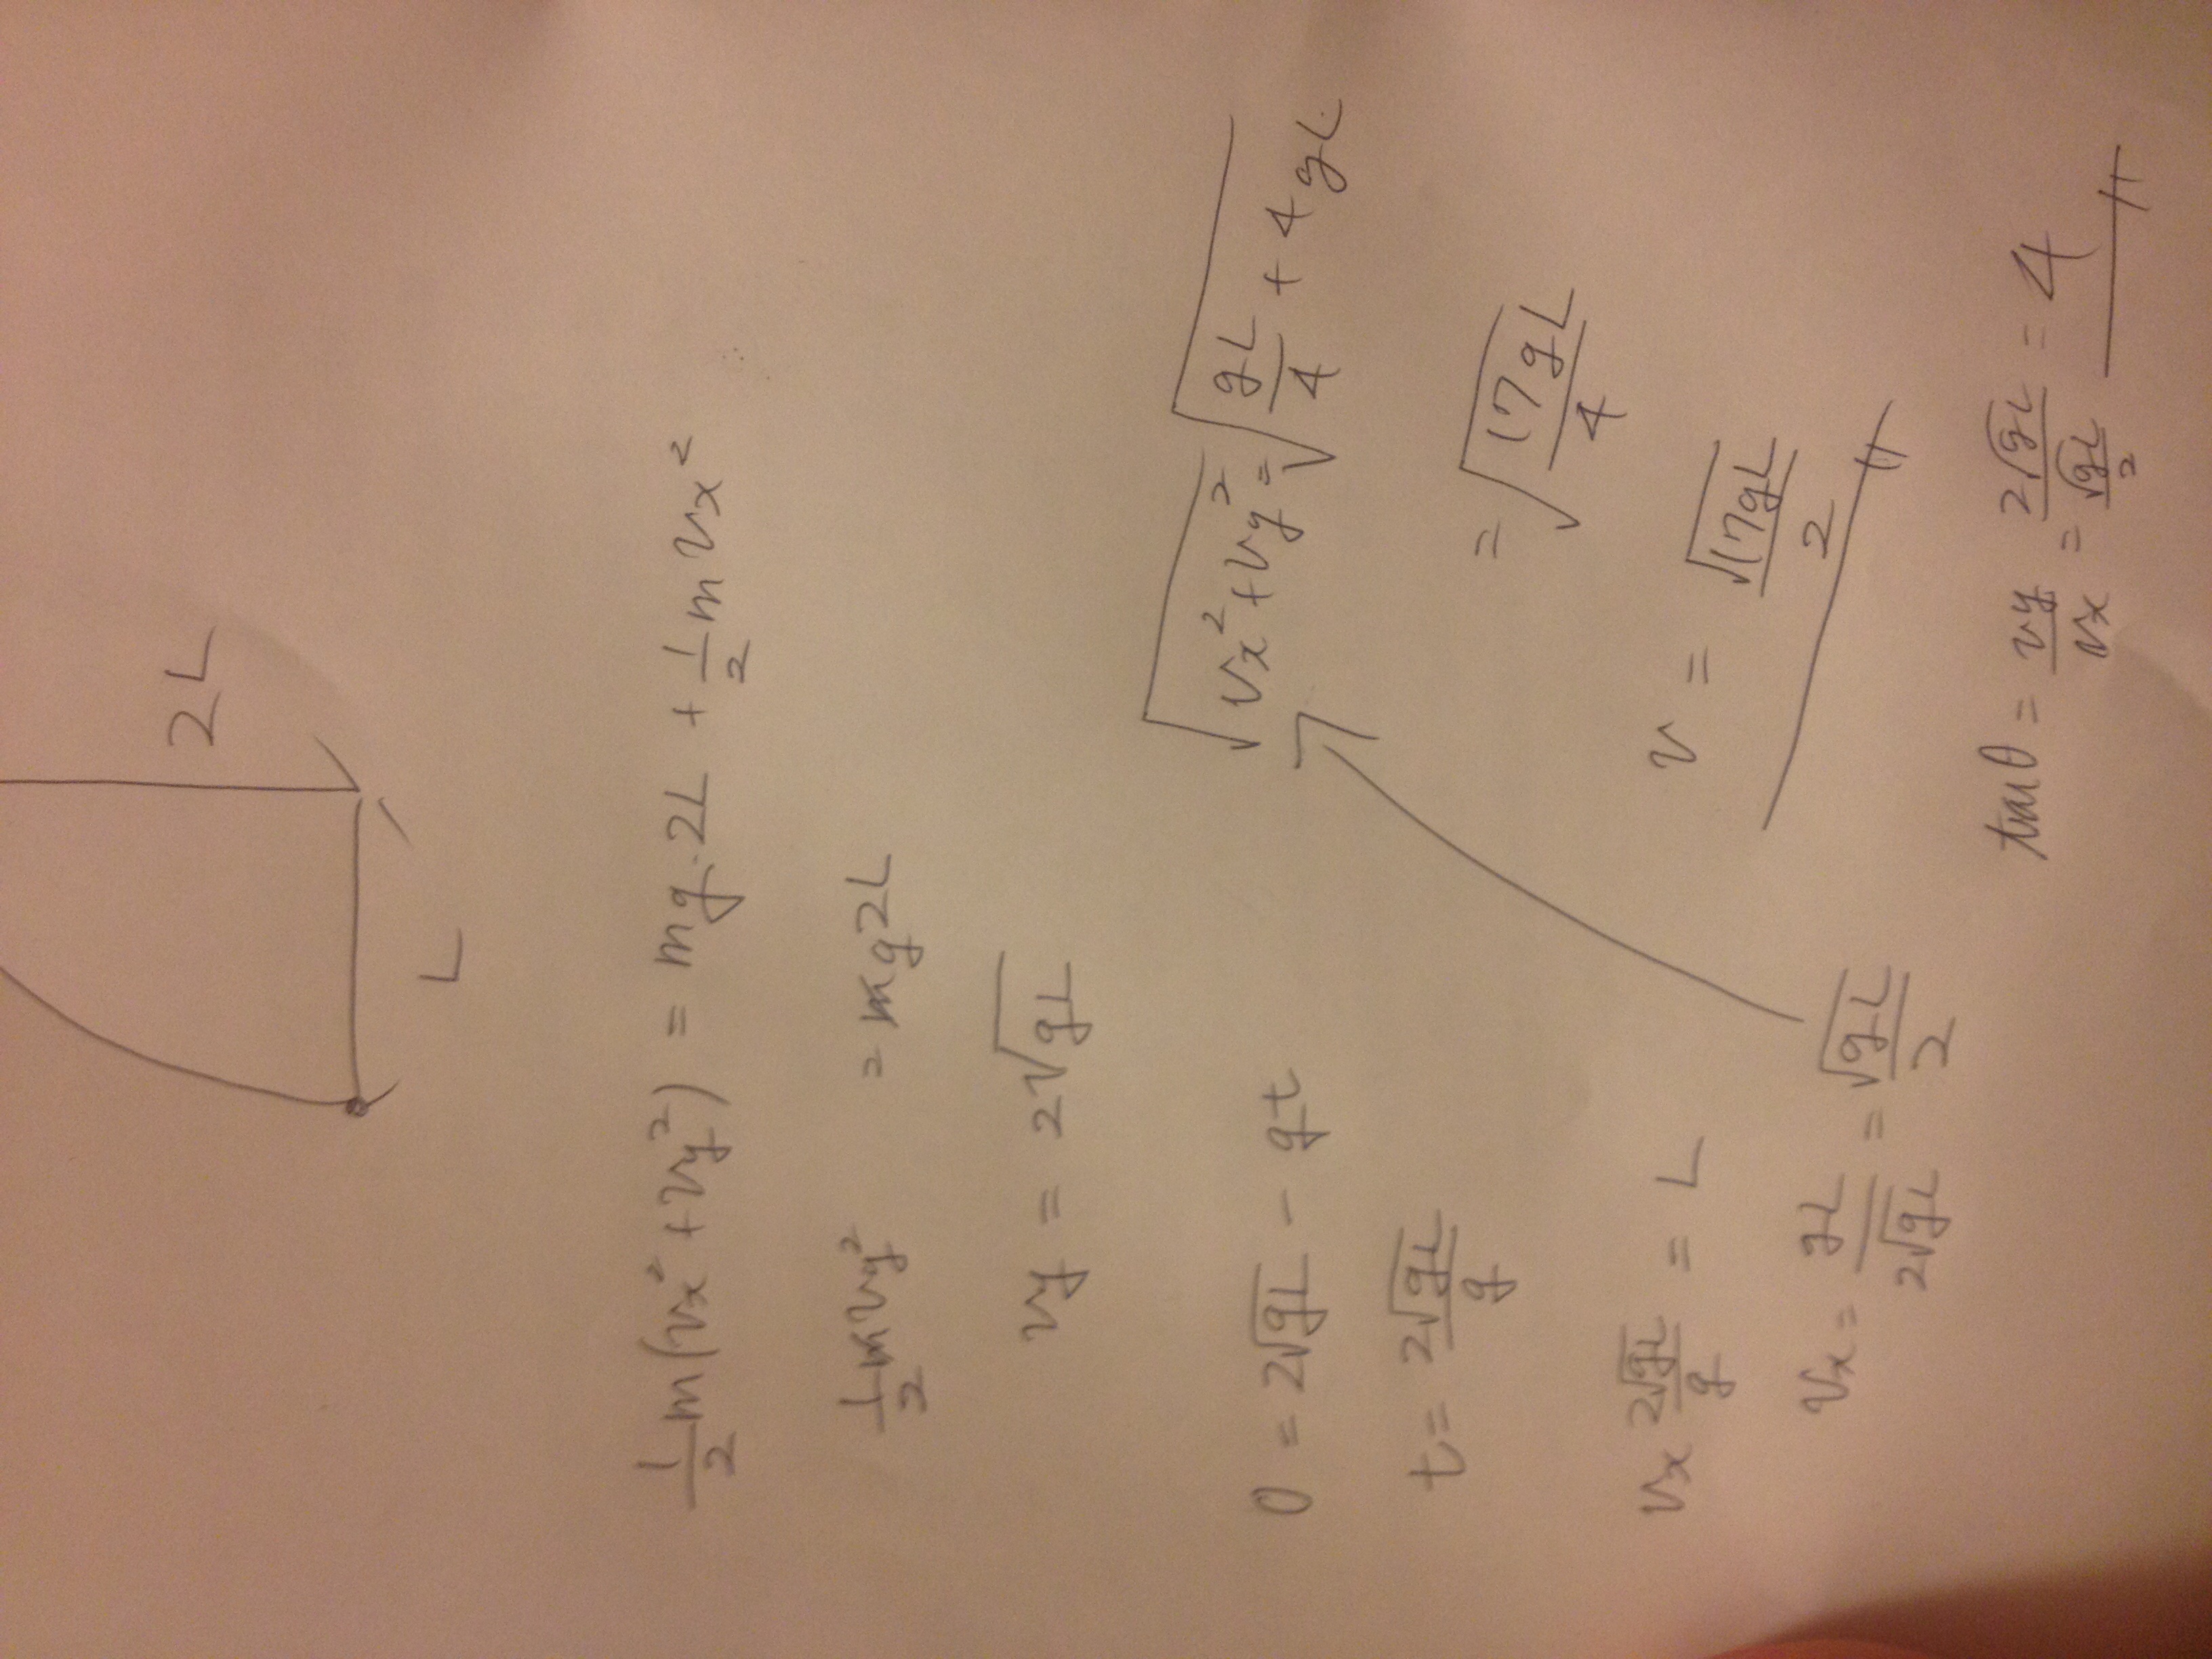 2L
L
½m(vx²+vy²) = mg·2L + ½mvx²
½mvy² = mg2L
vy = 2√gL
0 = 2√gL - gt
t = 2√gL/g
vx 2√gL/g = L
vx = gL/2√gL = √gL/2
√(vx²+vy²) = √(gL/4 + 4gL)
= √(17gL/4)
v = √17gL/2
tanθ = vy/vx = 2√gL/(√gL/2) = 4